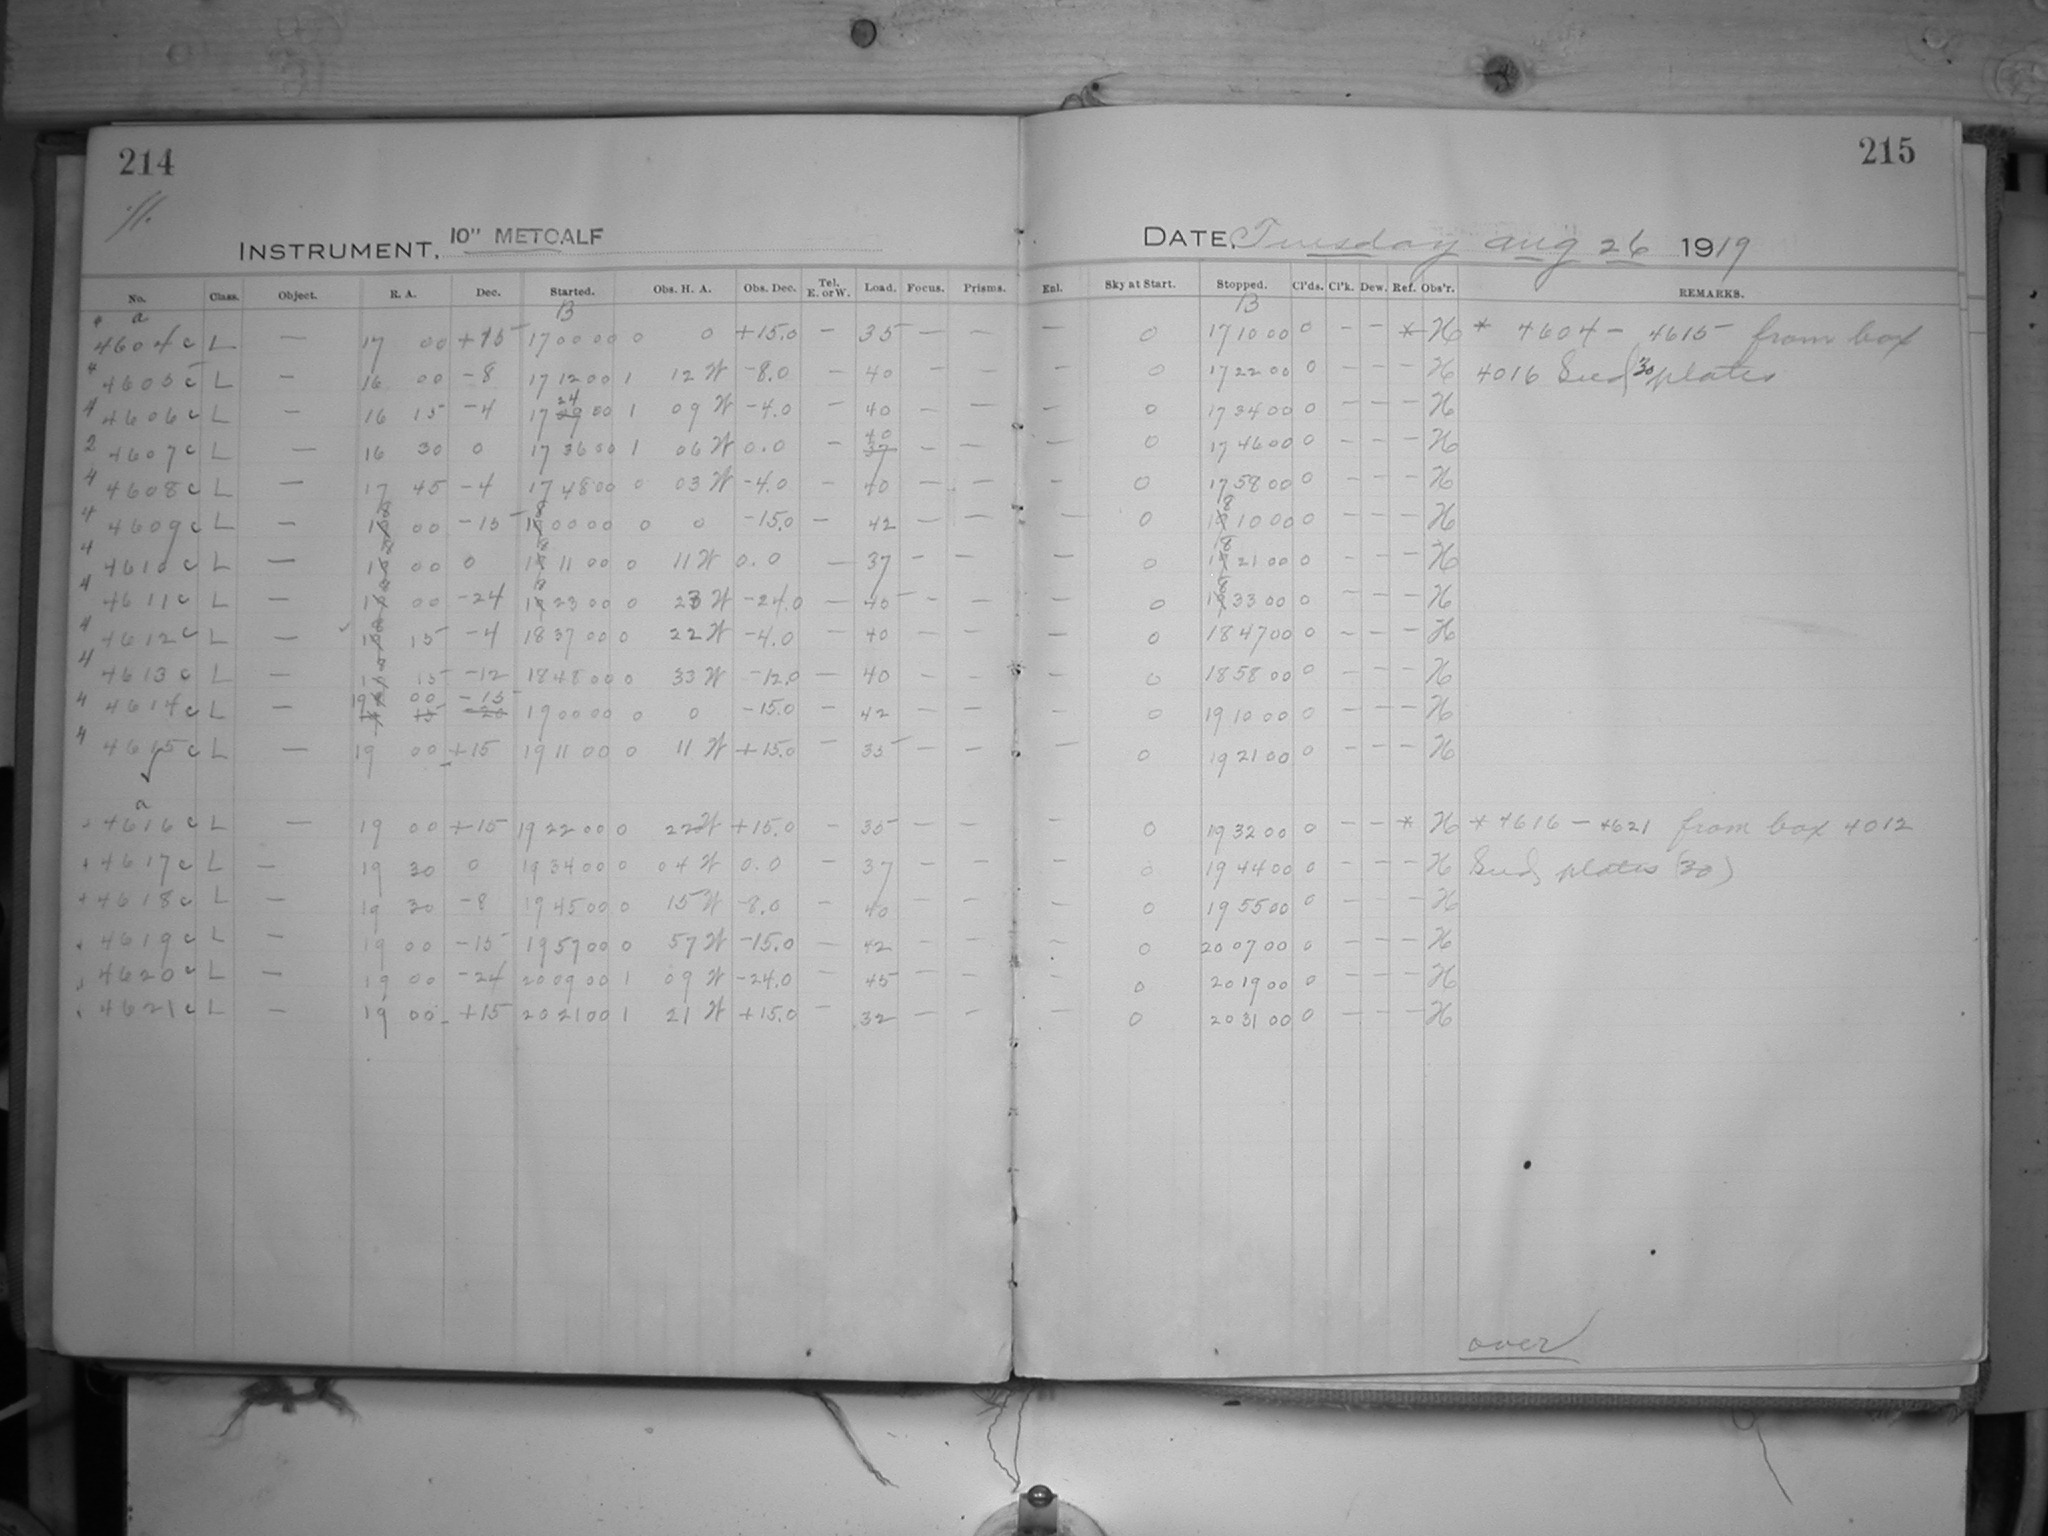 214 215
INSTRUMENT. 10" METCALF DATE. Tuesday Aug 26 1919
No. Class. Object. R. A. Dec. Started. Obs. H. A. Obs. Dec. Tel. E. or W. Load. Focus. Prisms. Enl. Sky at Start. Stopped. Cl'ds. Cl'k. Dew. Ref. Obs'r. REMARKS.
a B B
4604 c L — 17 00 +15 17 00 00 0 0 +15.0 — 35 — — — 0 17 10 00 0 — — * H * 4604 — 4615 from box
4605 c L — 16 00 -8 17 12 00 1 12 W -8.0 — 40 — — — 0 17 22 00 0 — — — H 4016 Seed 30 plates
4606 c L — 16 15 -4 17 24 00 1 09 W -4.0 — 40 — — — 0 17 34 00 0 — — — H
4607 c L — 16 30 0 17 36 00 1 06 W 0.0 — 40 — — — 0 17 46 00 0 — — — H
4608 c L — 17 45 -4 17 48 00 0 03 W -4.0 — 40 — — — 0 17 58 00 0 — — — H
4609 c L — 00 -15 18 00 00 0 0 -15.0 — 42 — — — 0 18 10 00 0 — — — H
4610 c L — 00 0 18 11 00 0 11 W 0.0 — 37 — — — 0 18 21 00 0 — — — H
4611 c L — 00 -24 18 23 00 0 23 W -24.0 — 45 — — — 0 18 33 00 0 — — — H
4612 c L — 15 -4 18 37 00 0 22 W -4.0 — 40 — — — 0 18 47 00 0 — — — H
4613 c L — 15 -12 18 48 00 0 33 W -12.0 — 40 — — — 0 18 58 00 0 — — — H
4614 c L — 19 00 -15 19 00 00 0 0 -15.0 — 42 — — — 0 19 10 00 0 — — — H
4615 c L — 19 00 +15 19 11 00 0 11 W +15.0 — 35 — — — 0 19 21 00 0 — — — H
a
4616 c L — 19 00 +15 19 22 00 0 22 W +15.0 — 35 — — — 0 19 32 00 0 — — * H * 4616 — 4621 from box 4012
4617 c L — 19 30 0 19 34 00 0 04 W 0.0 — 37 — — — 0 19 44 00 0 — — — H Seed plates (30)
4618 c L — 19 30 -8 19 45 00 0 15 W -8.0 — 40 — — — 0 19 55 00 0 — — — H
4619 c L — 19 00 -15 19 57 00 0 57 W -15.0 — 42 — — — 0 20 07 00 0 — — — H
4620 c L — 19 00 -24 20 09 00 1 09 W -24.0 — 45 — — — 0 20 19 00 0 — — — H
4621 c L — 19 00 +15 20 21 00 1 21 W +15.0 — 32 — — — 0 20 31 00 0 — — — H
over